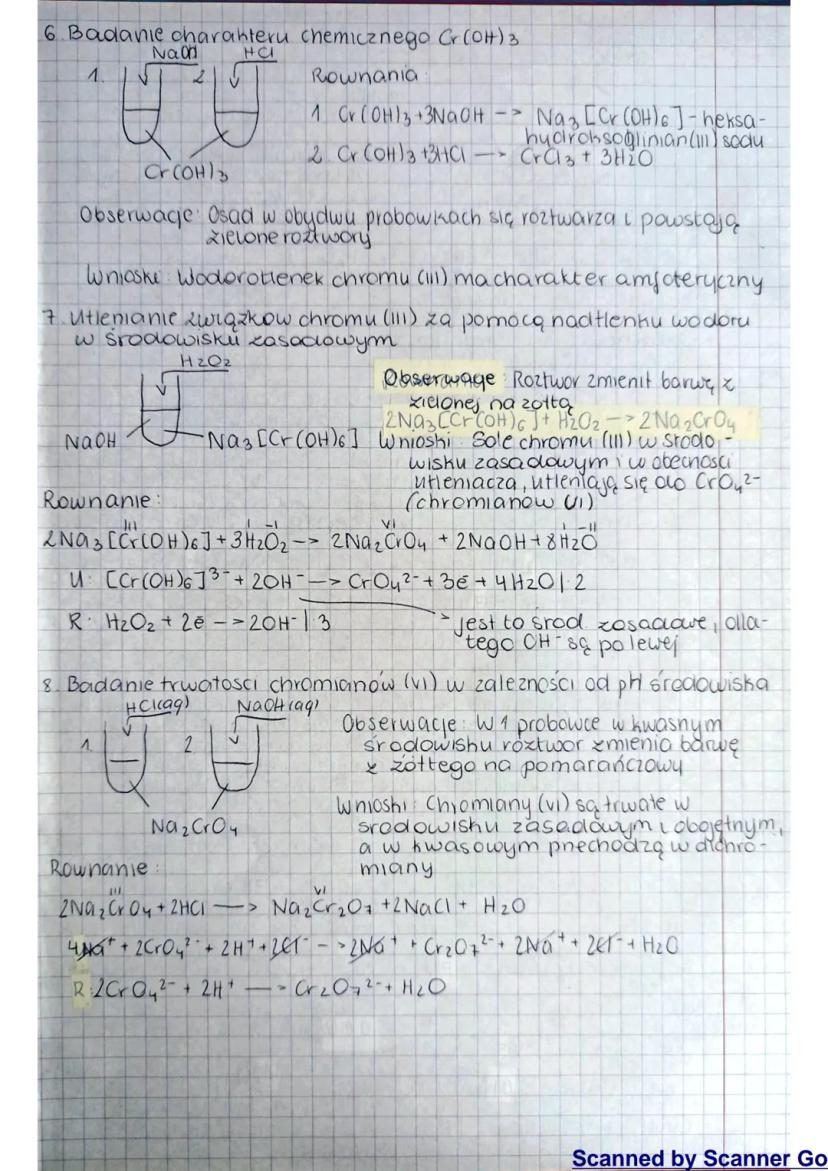 6. Badanie charakteru chemicznego Cr(OH)3
NaOH HCl
1. 2
Cr(OH)3
Rownania:
1 Cr(OH)3+3NaOH -> Na3[Cr(OH)6] - heksa-
hydroksoglinian(III) sodu
2 Cr(OH)3+3HCl -> CrCl3 + 3H2O
Obserwacje: Osad w obydwu probowkach się roztwarza i powstają
zielone roztwory
Wnioski: Wodorotlenek chromu (III) ma charakter amfoteryczny
7. Utlenianie związków chromu (III) za pomocą nadtlenku wodoru
w środowisku zasadowym
H2O2
NaOH Na3[Cr(OH)6]
Obserwacje: Roztwor zmienił barwę z
zielonej na żółtą
2Na3[Cr(OH)6]+ H2O2 -> 2Na2CrO4
Wnioski: Sole chromu (III) w środo-
wisku zasadowym i w obecności
utleniacza, utleniają się do CrO4 2-
(chromianów VI)
Rownanie:
III I -I VI I -II
2Na3[Cr(OH)6]+3H2O2 -> 2Na2CrO4 + 2NaOH+8H2O
U: [Cr(OH)6]3- + 2OH- -> CrO4 2- + 3e + 4H2O |·2
R: H2O2 + 2e -> 2OH- |·3
jest to środ zasadowe, dla-
tego OH- są po lewej
8. Badanie trwałości chromianów (VI) w zależności od pH środowiska
HCl(aq) NaOH(aq)
1. 2
Na2CrO4
Obserwacje: W 1 probowce w kwasnym
środowisku roztwor zmienia barwę
z żółtego na pomarańczowy
Wnioski: Chromiany (VI) są trwałe w
srodowisku zasadowym i obojętnym,
a w kwasowym przechodzą w dichro-
miany
Rownanie:
III VI
2Na2CrO4 + 2HCl -> Na2Cr2O7 +2NaCl + H2O
4Na+ + 2CrO4 2- + 2H+ + 2Cl- -> 2Na+ + Cr2O7 2- + 2Na+ + 2Cl- + H2O
R: 2CrO4 2- + 2H+ -> Cr2O7 2- + H2O
Scanned by Scanner Go